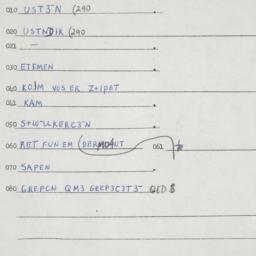 010 UST3~N (290
020 USTNDIK (290
021 —
030 ETEMEN
040 KO/M VUS ER Z+IPET
041 KAM
050 S+W~LKERC3N
060 RET FUN EM (DERMONT 061
070 SAPEN
080 GREPCN QM3 GREP3C3T3~